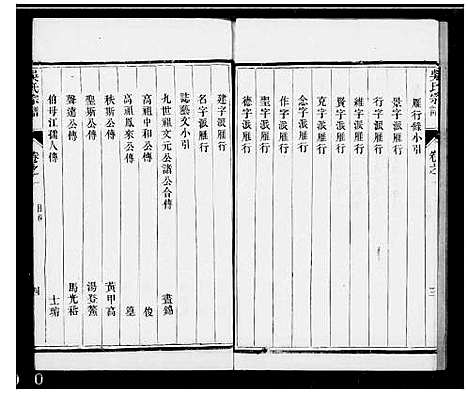 吳氏宗譜 卷之一 三
雁行錄小引
景字派雁行
行字派雁行
維字派雁行
賢字派雁行
克字派雁行
念字派雁行
作字派雁行
聖字派雁行
德字派雁行
建字派雁行
名字派雁行
誌藝文小引
九世祖文元公諸公合傳
高祖中和公傳 俊
高祖鳳來公傳
秩斯公傳 黃甲高
聖斯公傳 湯登鰲
聲遠公傳 馬光裕
伯母江孺人傳 士瑞
吳氏宗譜 卷之一 目錄 四
0